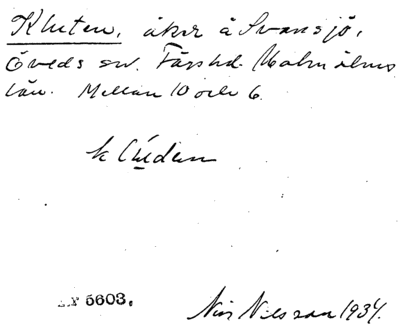 Kluten, åker å Svansjö,
Öveds sn. Färs hd. Malmöhus
län. Mellan 10 och 6.
5603.
Nils Nilsson 1934.